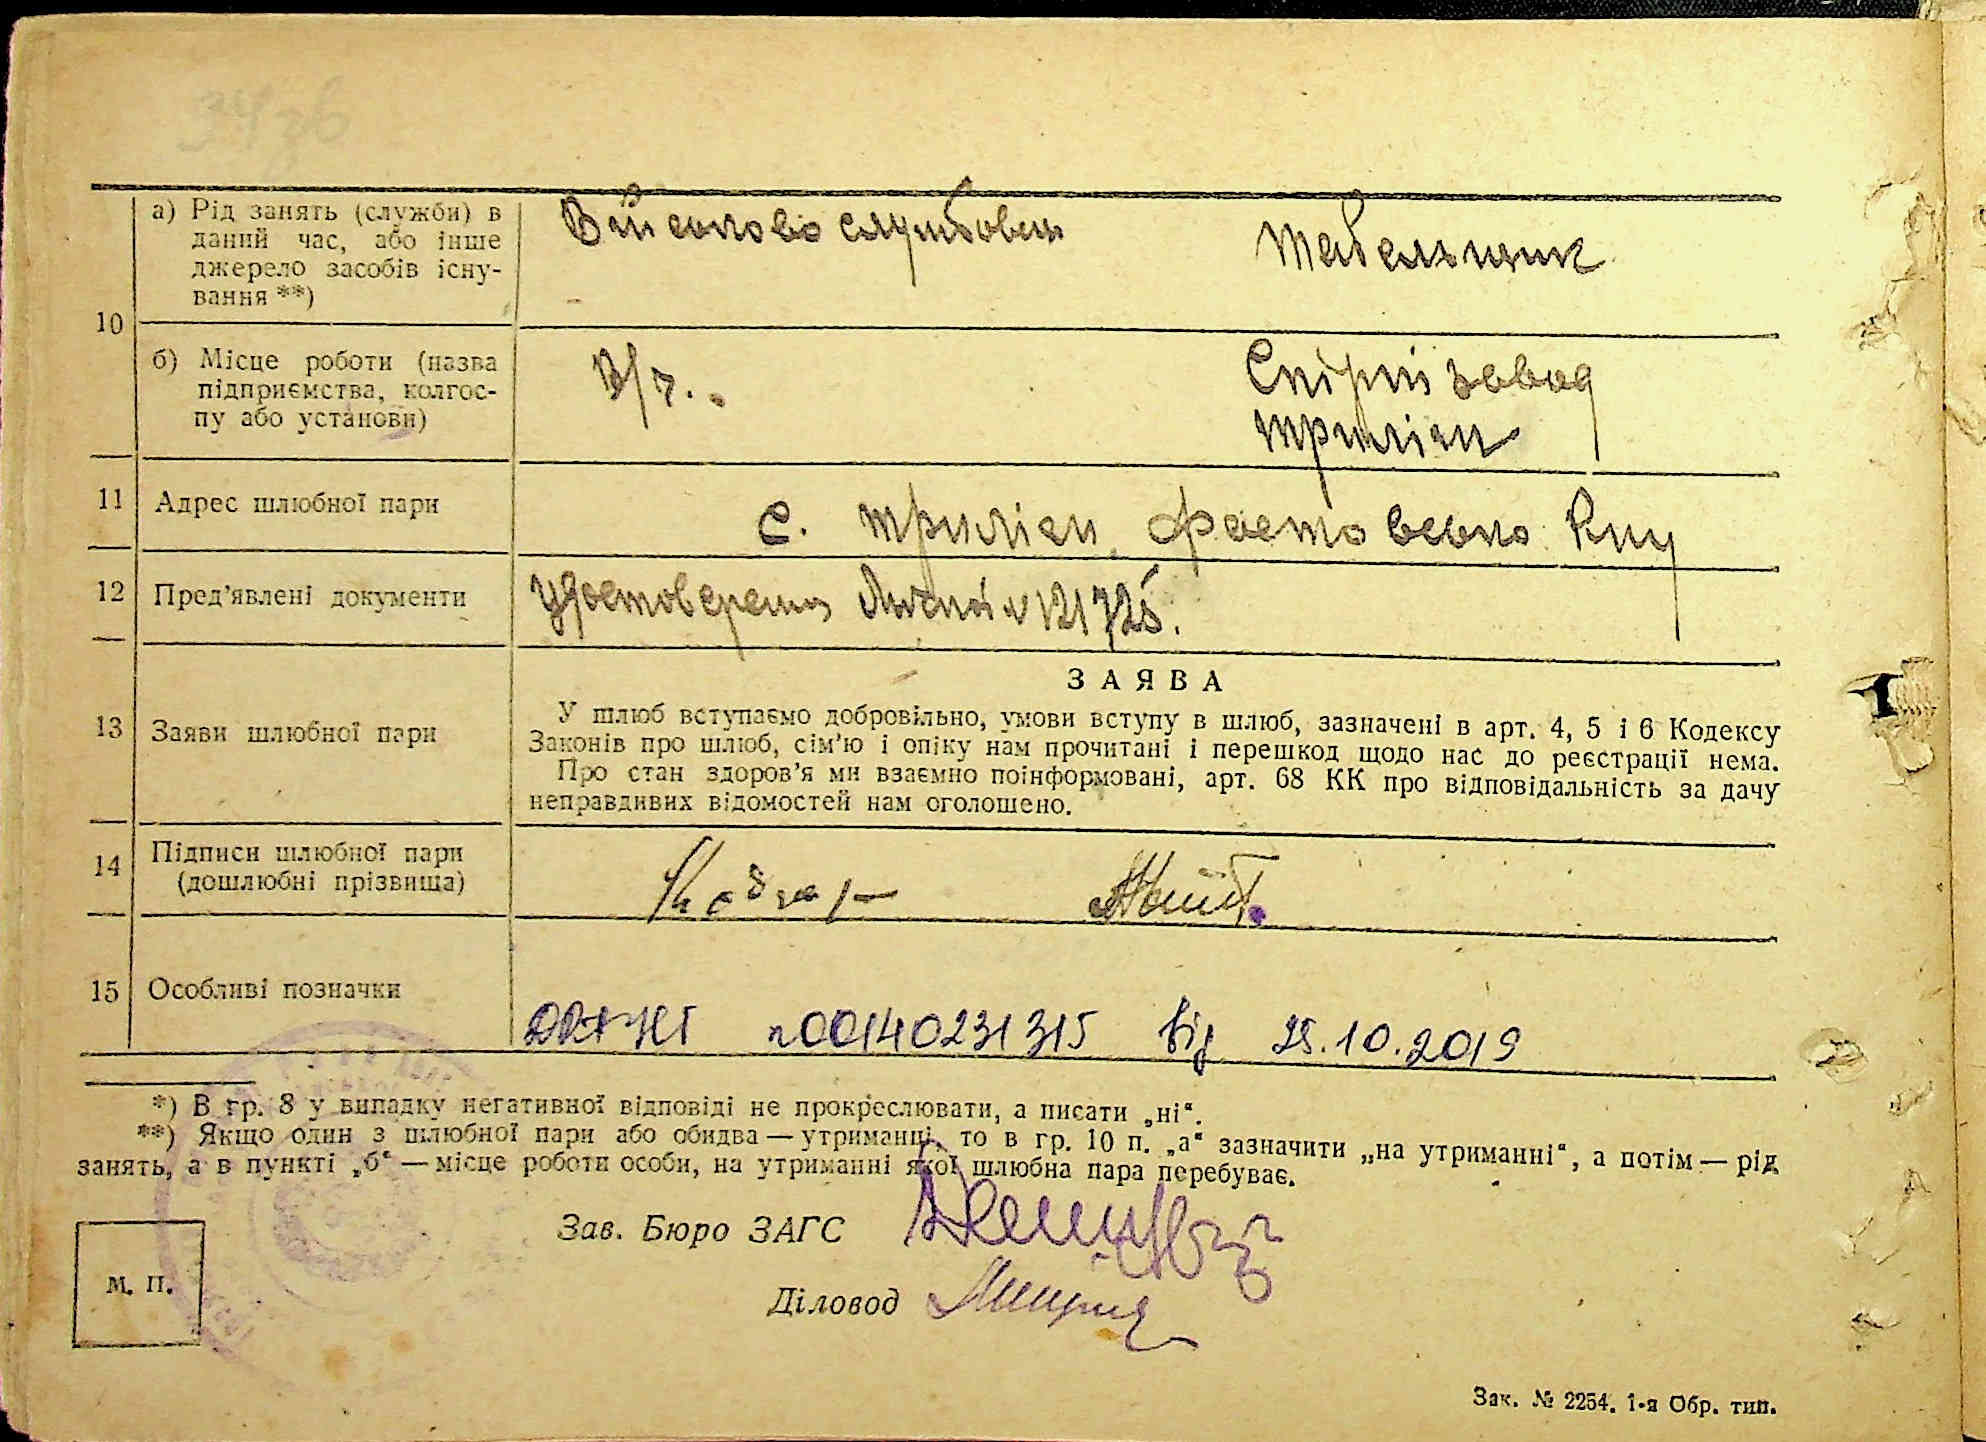 10
а) Рід занять (служби) в
даний час, або інше
джерело засобів існу-
вання **)
Військово службовець
табельщик
б) Місце роботи (назва
підприємства, колгос-
пу або установи)
В/ч.
Спірт завод
триліси
11
Адрес шлюбної пари
с. триліси, фастовського р-ну
12
Пред’явлені документи
удостоверения личности № 121725.
13
Заяви шлюбної пари
ЗАЯВА
У шлюб вступаємо добровільно, умови вступу в шлюб, зазначені в арт. 4, 5 і 6 Кодексу
Законів про шлюб, сім’ю і опіку нам прочитані і перешкод щодо нас до реєстрації нема.
Про стан здоров’я ми взаємно поінформовані, арт. 68 КК про відповідальність за дачу
неправдивих відомостей нам оголошено.
14
Підписи шлюбної пари
(дошлюбні прізвища)
15
Особливі позначки
00140231315 від 25.10.2019
*) В гр. 8 у випадку негативної відповіді не прокреслювати, а писати „ні“.
**) Якщо один з шлюбної пари або обидва — утриманці, то в гр. 10 п. „а“ зазначити „на утриманні“, а потім — рід
занять, а в пункті „б“ — місце роботи особи, на утриманні якої шлюбна пара перебуває.
Зав. Бюро ЗАГС
М. П.
Діловод
Зак. № 2254. 1-я Обр. тип.